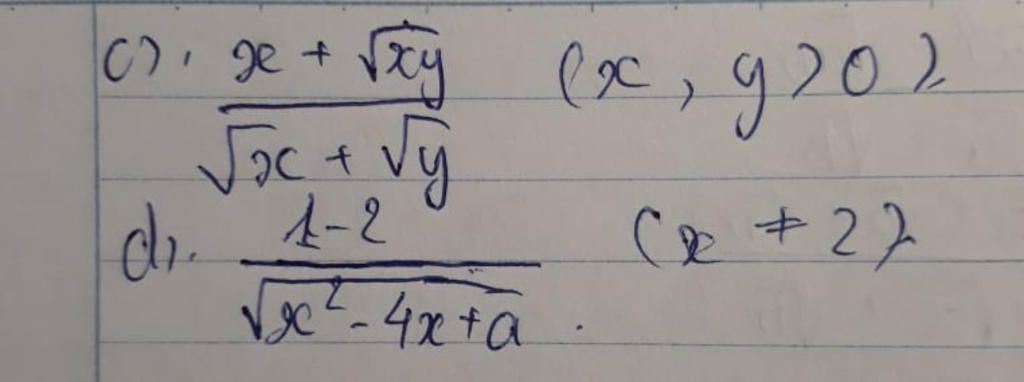 c). x + √xy / √x + √y (x, y > 0)
d). 1-2 / √x² - 4x + a (x ≠ 2)